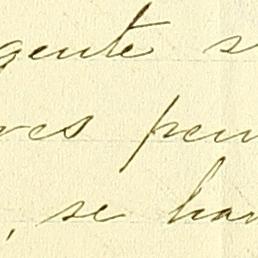 gente s
ves pen
, se han